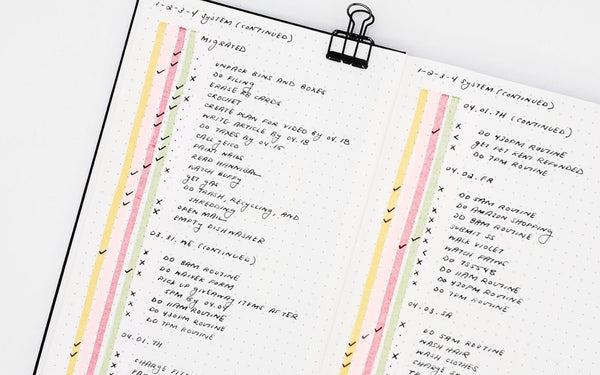 1-2-3-4 SYSTEM (CONTINUED)
MIGRATED
UNPACK BINS AND BOXES
DO FILING
ERASE CARDS
CROCHET
CREATE PLAN FOR VIDEO BY 04.18
WRITE ARTICLE BY 04.18
DO TAXES BY 04.15
CALL GEICO
PAINT NAILS
READ HANNIBAL
WATCH BUFFY
GET GAS
DO TRASH, RECYCLING, AND
SHREDDING
OPEN MAIL
EMPTY DISHWASHER
03.31.WE (CONTINUED)
DO 8AM ROUTINE
DO WAIVER FORM
PICK UP GIVEAWAY ITEMS AFTER
5PM BY 04.04
DO 11AM ROUTINE
DO 430PM ROUTINE
DO 7PM ROUTINE
04.01.TH
1-2-3-4 SYSTEM (CONTINUED)
04.01.TH (CONTINUED)
DO 430PM ROUTINE
GET PET RENT REFUNDED
DO 7PM ROUTINE
04.02.FR
DO 5AM ROUTINE
DO AMAZON SHOPPING
DO 8AM ROUTINE
SUBMIT SS
WALK VIOLET
WATCH PATHS
DO TS554B
DO 11AM ROUTINE
DO 430PM ROUTINE
DO 7PM ROUTINE
04.03.SA
DO 5AM ROUTINE
WASH HAIR
WASH CLOTHES